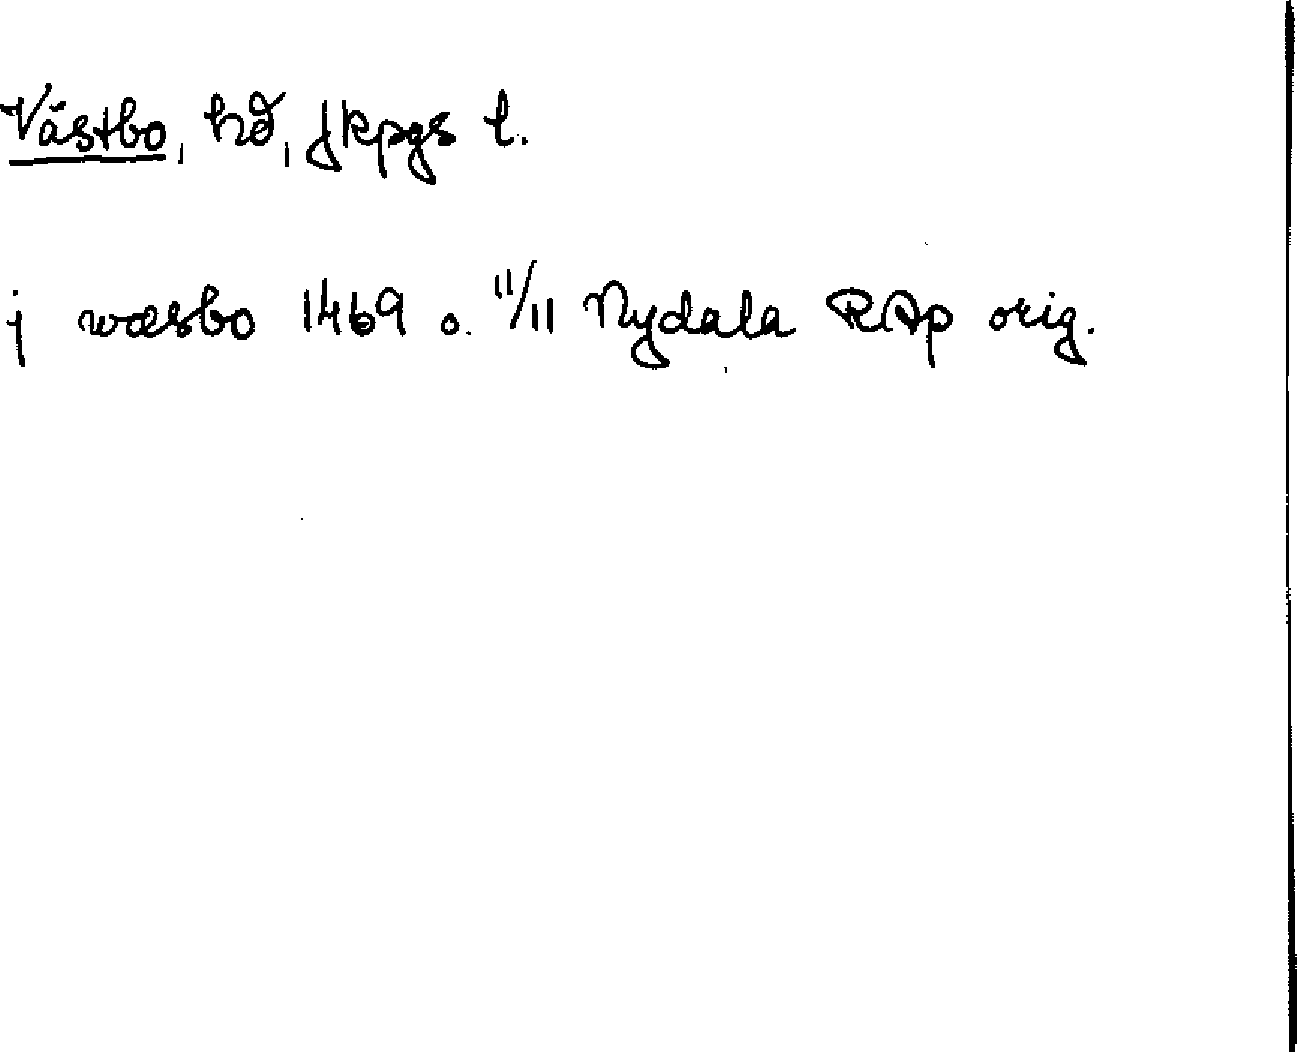 Västbo, hd, Jkpgs l.
j wæsbo 1469 o. 11/11 Nydala RAp orig.